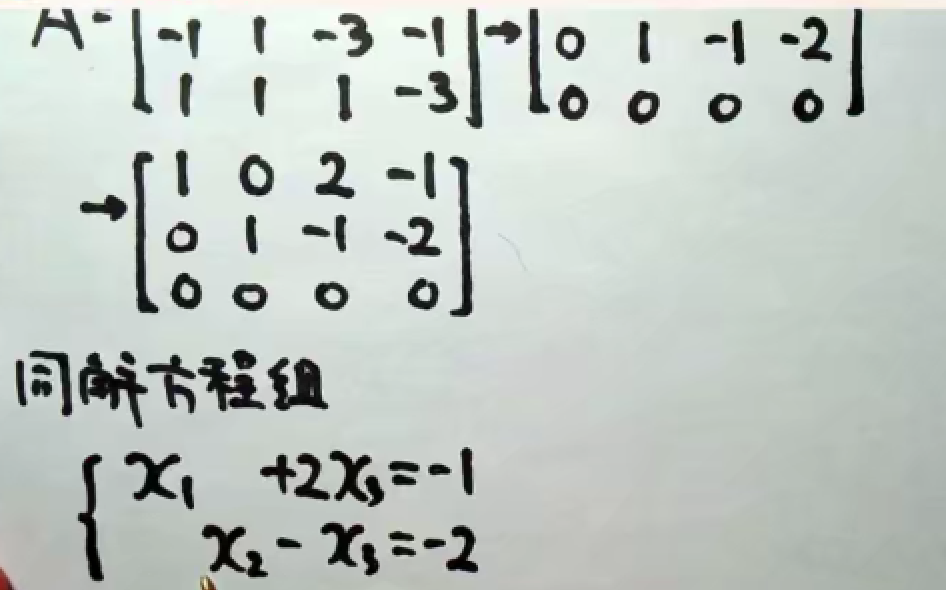 A = [ -1 1 -3 -1 ] → [ 0 1 -1 -2 ]
[ 1 1 1 -3 ] [ 0 0 0 0 ]
→ [ 1 0 2 -1 ]
[ 0 1 -1 -2 ]
[ 0 0 0 0 ]
同解方程组
{ x₁ +2x₃=-1
x₂ - x₃=-2